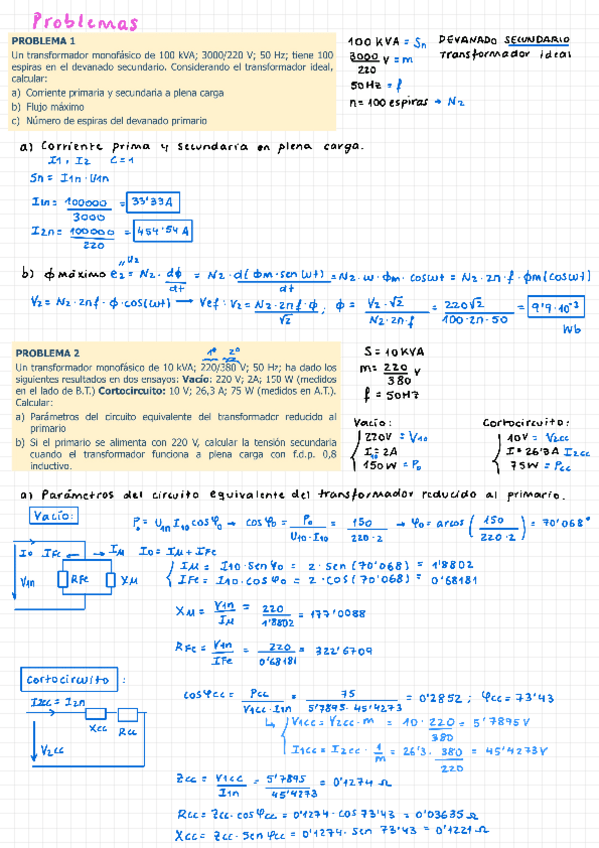 Problemas
PROBLEMA 1
Un transformador monofásico de 100 kVA; 3000/220 V; 50 Hz; tiene 100
espiras en el devanado secundario. Considerando el transformador ideal,
calcular:
a) Corriente primaria y secundaria a plena carga
b) Flujo máximo
c) Número de espiras del devanado primario
100 KVA = Sn
3000/220 V = m
50Hz = f
n = 100 espiras → N2
DEVANADO SECUNDARIO
Transformador ideal
a) Corriente prima y secundaria en plena carga.
I1, I2 C=1
Sn = I1n · U1n
I1n = 100000/3000 = 33'33A
I2n = 100000/220 = 454'54 A
b) ϕ máximo e2 = N2 · dϕ/dt = N2 · d(ϕm·sen(wt))/dt = N2·w·ϕm·coswt = N2·2π·f·ϕm(cos(wt)
V2 = N2·2πf·ϕ·cos(wt) → Vef: V2 = N2·2πf·ϕ/√2; ϕ = V2·√2/N2·2π·f = 220√2/100·2π·50 = 9'9·10⁻³ Wb
PROBLEMA 2
1º 2º
Un transformador monofásico de 10 kVA; 220/380 V; 50 Hz; ha dado los
siguientes resultados en dos ensayos: Vacío: 220 V; 2A; 150 W (medidos
en el lado de B.T.) Cortocircuito: 10 V; 26,3 A; 75 W (medidos en A.T.).
Calcular:
a) Parámetros del circuito equivalente del transformador reducido al
primario
b) Si el primario se alimenta con 220 V, calcular la tensión secundaria
cuando el transformador funciona a plena carga con f.d.p. 0,8
inductivo.
S = 10 KVA
m = 220/380 V
f = 50Hz
Vacío:
220V = V10
I10 = 2A
150W = P0
Cortocircuito:
10V = V2cc
I = 26'3A I2cc
75W = Pcc
a) Parámetros del circuito equivalente del transformador reducido al primario.
Vacío:
P0 = U1n I10 cosφ0 → cosφ0 = P0/U10·I10 = 150/220·2 → φ0 = arcos(150/220·2) = 70'068°
I0 IFe Iμ I0 = Iμ + IFe
V1n RFe Xμ
Iμ = I10·senφ0 = 2·sen(70'068) = 1'8802
IFe = I10·cosφ0 = 2·cos(70'068) = 0'68181
Xμ = V1n/Iμ = 220/1'8802 = 117'0088
RFe = V1n/IFe = 220/0'68181 = 322'6709
Cortocircuito:
I2cc = I2n
Xcc Rcc
V2cc
cosφcc = Pcc/V1cc·I1n = 75/5'7895·45'4273 = 0'2852; φcc = 73'43
V1cc = V2cc·m = 10·220/380 = 5'7895V
I1cc = I2cc·1/m = 26'3·380/220 = 45'4273V
Zcc = V1cc/I1n = 5'7895/45'4273 = 0'1274 Ω
Rcc = Zcc·cosφcc = 0'1274·cos 73'43 = 0'03635 Ω
Xcc = Zcc·senφcc = 0'1274·sen 73'43 = 0'1221 Ω